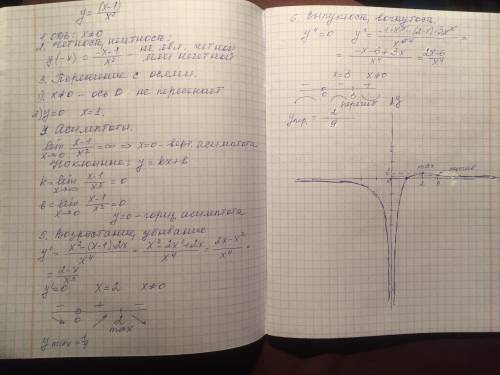 y = (x-1)/x²
1. ОВЗ: x≠0
2. Четность, нечетность:
y(-x) = (-x-1)/x² - не явл. четной
нечетной
3. Пересечение с осями.
1) x≠0 - ось O не пересекает
2) y=0 x=1.
4. Асимптоты.
lim x→0 (x-1)/x² = ∞ ⇒ x=0 - верт. асимптота
Наклонные: y = kx+b
k = lim x→∞ (x-1)/x³ = 0
b = lim x→∞ (x-1)/x² = 0
y=0 - гориз. асимптота
5. Возрастание, убывание
y' = (x²-(x-1)·2x)/x⁴ = (x²-2x²+2x)/x⁴ = (2x-x²)/x⁴ =
= (2-x)/x³
y'=0 x=2 x≠0
- + -
0 2
max
y max = 1/4
6. Выпуклость, вогнутость.
y''=0 y'' = (-1·x³-(2-x)·3x²)/x⁶ =
= (-x-6+3x)/x⁴ = (2x-6)/x⁴
x=3 x≠0
- - +
0 3
перегиб
y пер. = 2/9
y
max
2 3
перегиб